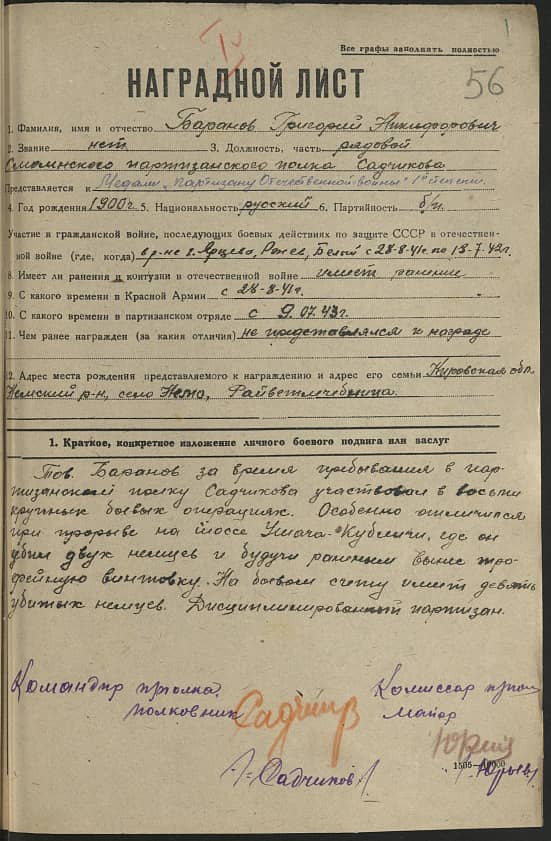 1
Все графы заполнять полностью
IV
НАГРАДНОЙ ЛИСТ
56
1. Фамилия, имя и отчество Баранов Григорий Никифорович
2. Звание нет 3. Должность, часть рядовой
Смолинского партизанского полка Садчикова
Представляется к Медали "Партизану Отечественной войны" 1й степени
4. Год рождения 1900 г. 5. Национальность русский 6. Партийность б/п
Участие в гражданской войне, последующих боевых действиях по защите СССР в отечествен-
ной войне (где, когда) в р-не г. Ярцево, Ржев, Белый с 28-8-41г. по 13-7-42г.
8. Имеет ли ранения и контузии в отечественной войне имеет ранение
9. С какого времени в Красной Армии с 28-8-41г.
10. С какого времени в партизанском отряде с 9.07.43г.
11. Чем ранее награжден (за какия отличия) не представлялся к награде
12. Адрес места рождения представляемого к награждению и адрес его семьи Кировская обл.
Немский р-н, село Нема, Райветлечебница.
1. Краткое, конкретное изложение личного боевого подвига или заслуг
Тов. Баранов за время пребывания в пар-
тизанском полку Садчикова участвовал в восьми
крупных боевых операциях. Особенно отличился
при прорыве на шоссе Ушача-Кубличи, где он
убил двух немцев и будучи раненым вынес тро-
фейную винтовку. На боевом счету имеет девять
убитых немцев. Дисциплинированный партизан.
Командир п/полка Комиссар п/полка
полковник Садчиков майор
Юрьев
1505—10000
/Садчиков/ /Юрьев/